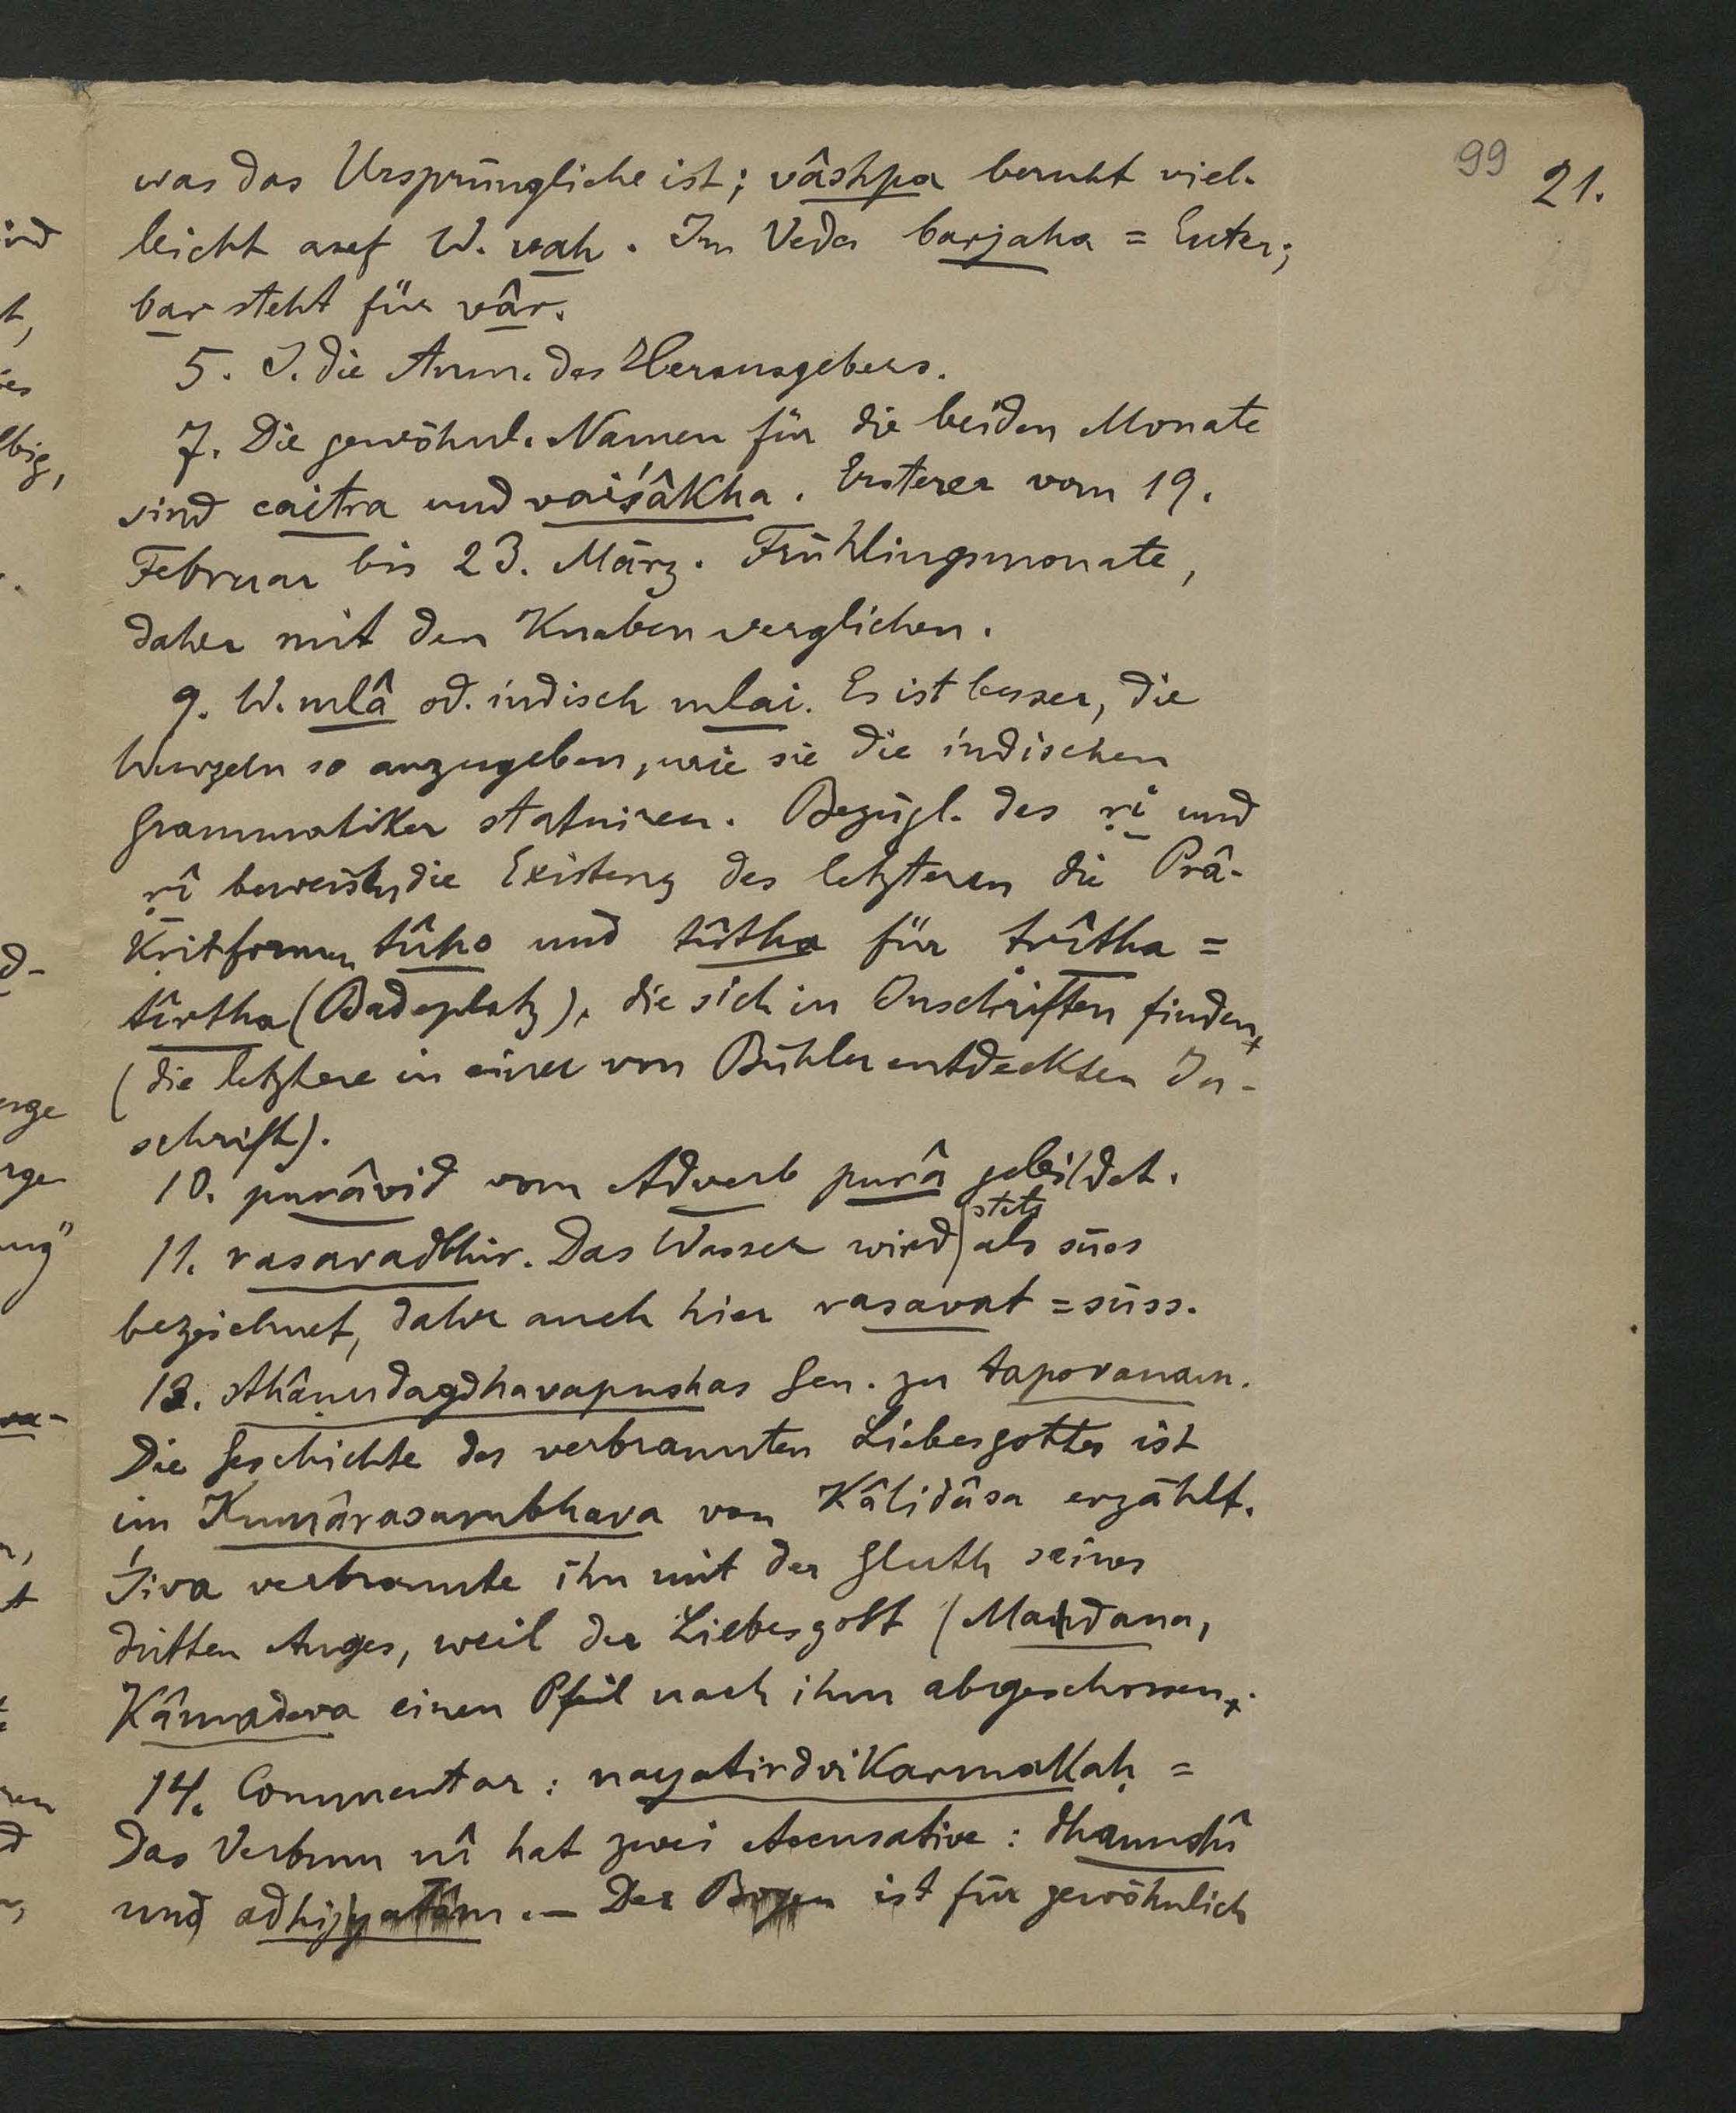 99 21.
was das Ursprüngliche ist; vâshpa beruht viel-
leicht auf W. vah. Im Veda barjaha = Euter;
bar steht für vâr.
5. S. die Anm. des Herausgebers.
7. Die gewöhnl. Namen für die beiden Monate
sind caitra und vaiśâkha. Ersterer vom 19.
Februar bis 23. März. Frühlingsmonate,
daher mit den Knaben verglichen.
9. W. mlâ od. indisch mlai. Es ist besser, die
Wurzeln so anzugeben, wie sie die indischen
Grammatiker statuiren. Bezügl. des ṛi und
ṛî beweisen die Existenz des letzteren die Prâ-
kritformen tûho und tûtha für tṛîtha =
tîrtha (Badeplatz), die sich in Inschriften finden
(die letztere in einer von Bühler entdeckten In-
schrift).
10. purâvid vom Adverb purâ gebildet.
11. rasavadbhir. Das Wasser wird stets als süss
bezeichnet, daher auch hier rasavat = süss.
13. sthâṇudagdhavapushas Gen. zu tapovanam.
Die Geschichte des verbrannten Liebesgottes ist
im Kumârasambhava von Kâlidâsa erzählt.
Śiva verbrannte ihn mit der Gluth seines
dritten Auges, weil der Liebesgott (Madana,
Kâmadeva einen Pfeil nach ihm abgeschossen.
14. Commentar: nayatirdvikarmakaḥ =
Das Verbum nî hat zwei Accusative: dhanushî
und adhijyatâm. — Der Bogen ist für gewöhnlich